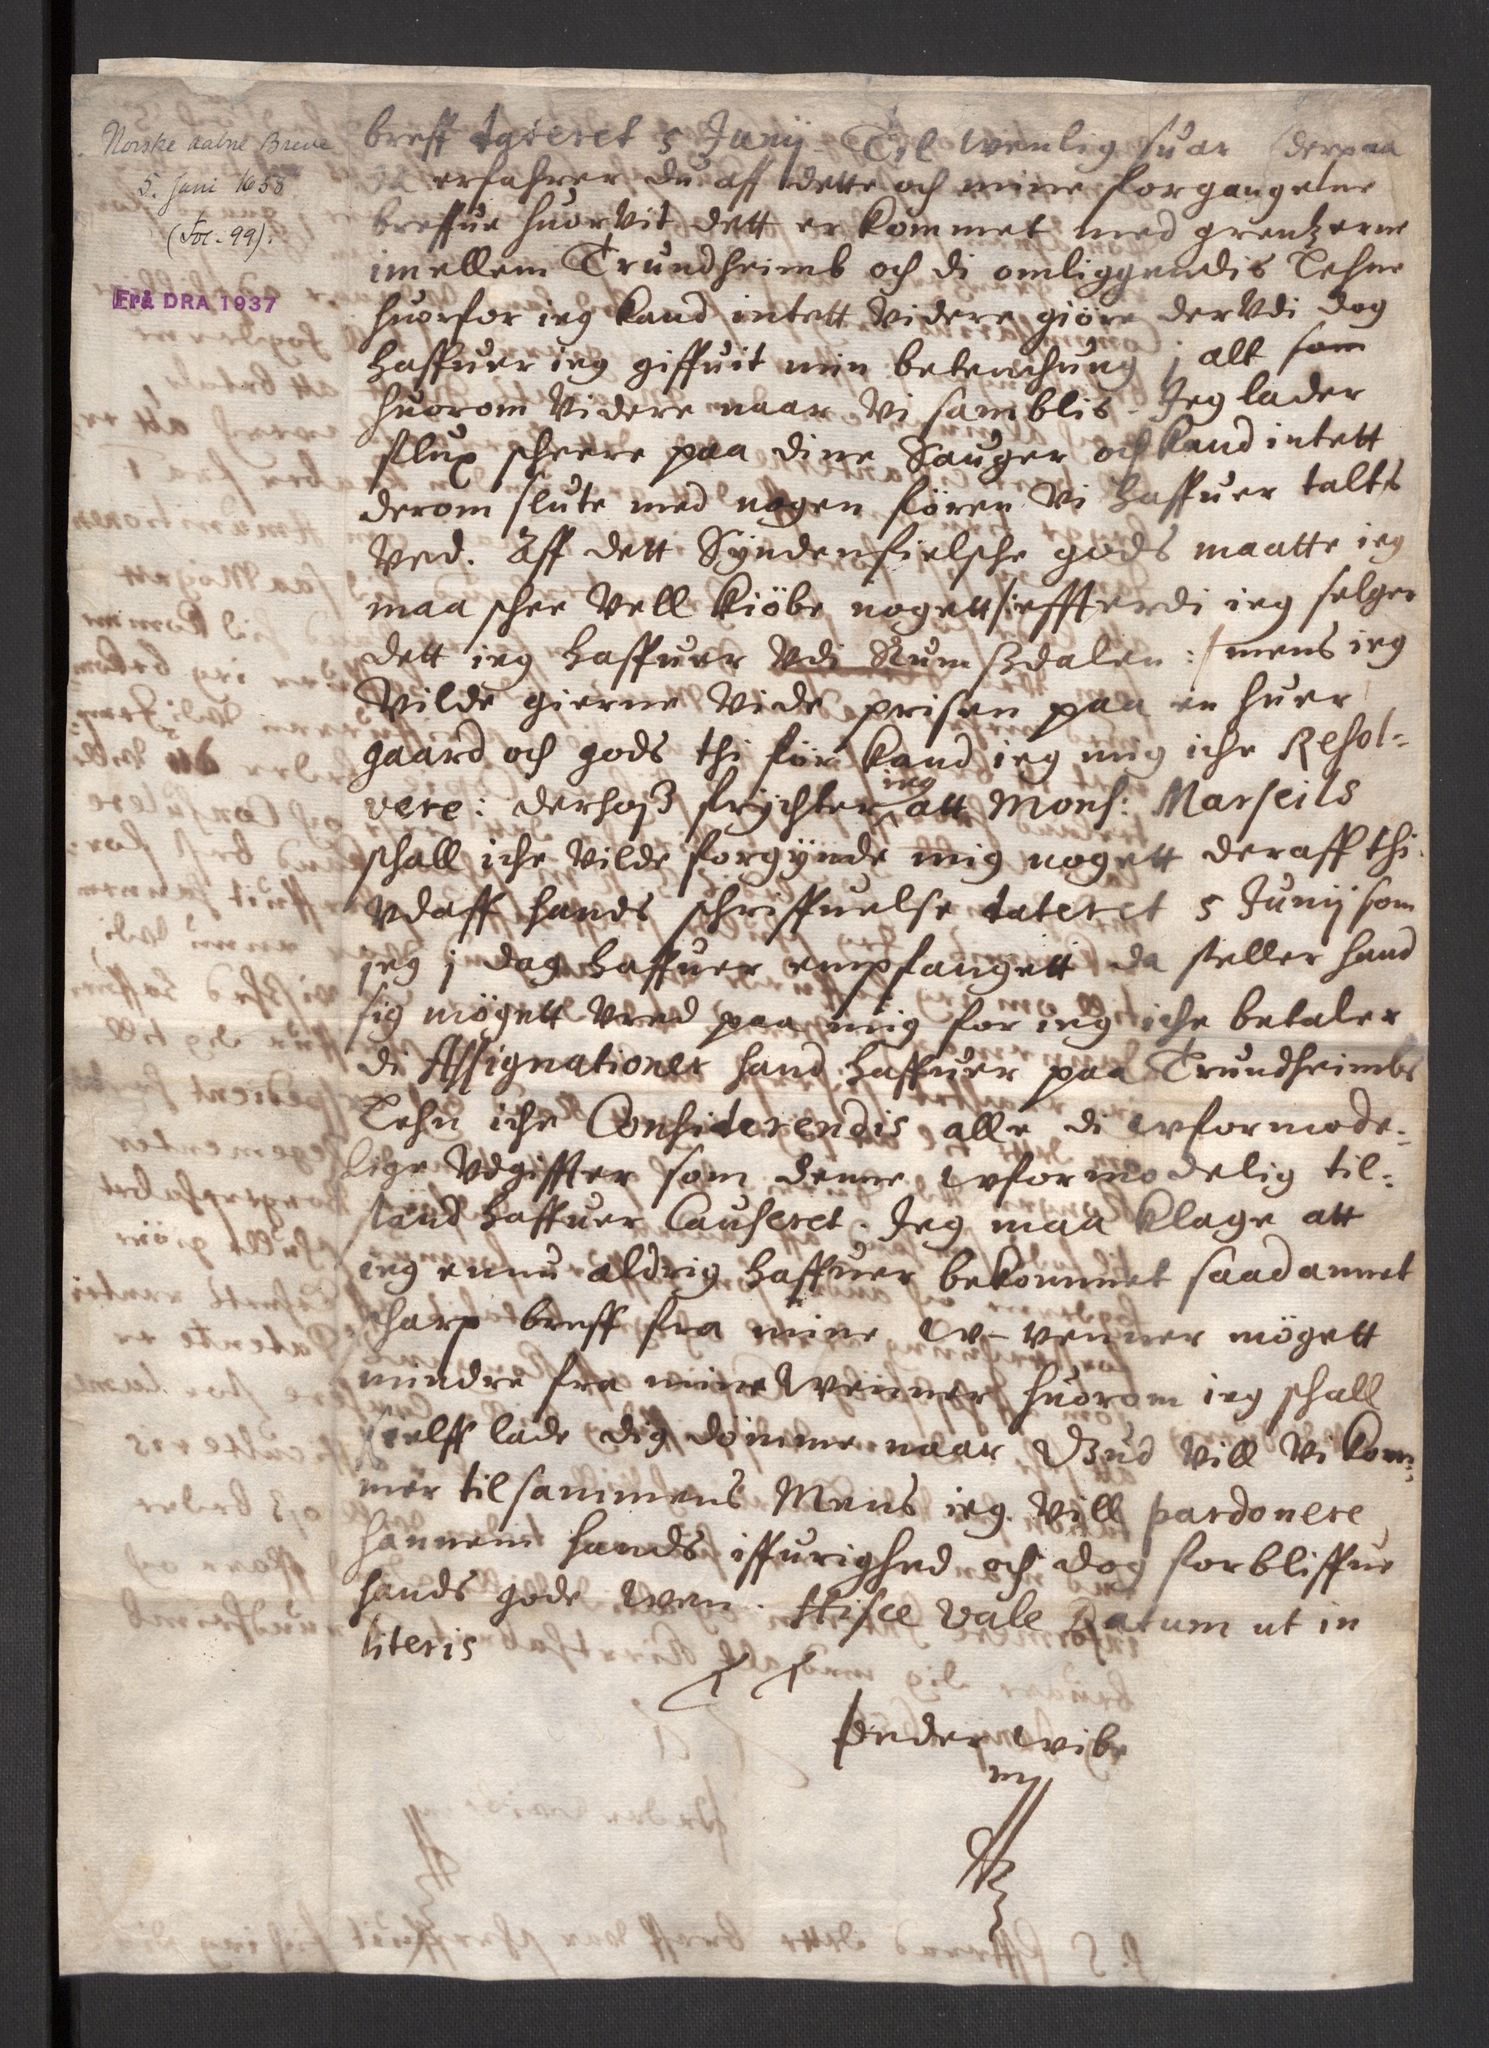 Norske aabne Breve
5. Juni 1658
(Fol. 99).
Frå DRA 1937
breff dateret 5 Junij. Til wenlig suar derpaa
erfahrer du aff dette och mine forgangene
breffue huorvit dett er kommet med grentzerne
imellem Trundheimb och di omliggendis Lehne
huorfor ieg kand intett videre giöre dervdi dog
haffuer ieg giffuit min betenchung j alt som
huorom videre naar vi samblis. Jeg lader
flux scheere paa dine Sauger och kand intett
derom slute med nogen fören vi haffuer talts
ved. Aff dett Syndenfielsche gods maatte ieg
maa schee vell kiöbe nogett effterdi ieg selger
dett ieg haffuer vdi Numszdalen: mens ieg
vilde gierne vide prisen paa en huer
gaard och gods thi för kand ieg mig iche Resol=
vere: derhosz frychter ieg att Mons: Marseils
schall iche vilde forgynde mig nogett deraff thi
vdaff hands schriffuelse dateret 5 Junij som
jeg j dag haffuer empfangett da steller hand
sig mögett vred paa mig for ieg iche betaler
di Assignationer hand haffuer paa Trundheimbs
Lehn iche Considerendis alle di wformode=
lige vdgiffter som denne wformodelig til=
stand haffuer Causeret. Jeg maa klage att
ieg ennu aldrig haffuer bekommet saadannet
scharp breff fra mine w-venner mögett
mindre fra mine wenner huorom ieg schall
sielff lade dig dömme naar Gud vill vi kom=
mer tilsammens Mens ieg vill pardonere
hannem hands iffurighed och dog forbliffue
hands gode wen. Hisce vale Datum ut in
literis
Peder Wibe